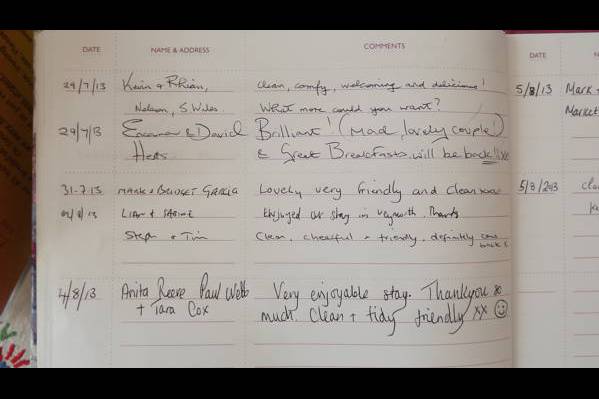 DATE NAME & ADDRESS COMMENTS
29/7/13 Kevin & Rhian, Clean, comfy, welcoming and delicious!
Nelson, S Wales. What more could you want?
29/7/13 & David Brilliant! (Mad, lovely couple!)
Herts & Great Breakfasts, will be back!!
31.7.13 MARK & BRIDGET GARCIA Lovely very friendly and clean xxx
LIAM & Enjoyed our stay in weymouth, Thanks
Steph & Tim Clean, cheerful & friendly, definitely come back x
4/8/13 Anita Reeve Paul Webb Very enjoyable stay. Thankyou so
+ Tara Cox much. Clean + tidy friendly xx
DATE N
5/8/13 Mark &
Market
5/8/2013